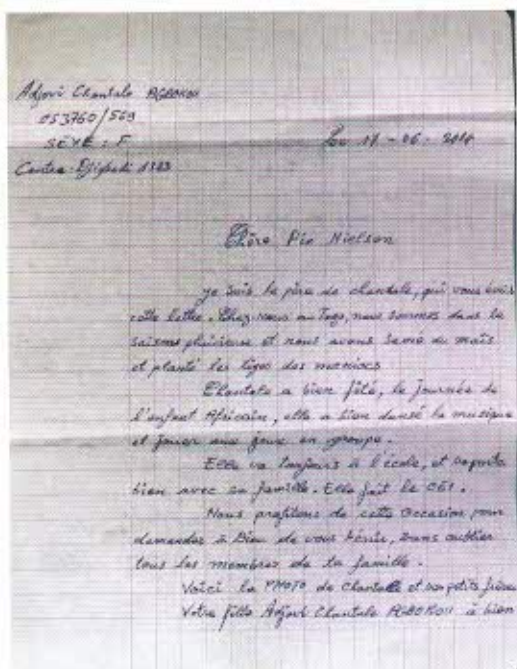 Adjovi Chantale AGBOKOU
053760/569
SEXE : F
Centre
Le 11 - 06 - 2010
Chère Pia Nielsen
je suis le père de chantale, qui vous écris
cette lettre. Chez nous au Togo, nous sommes dans la
saisons pluvieuse et nous avons semé du maïs
et planté les tiges des maniocs
Chantale a bien fêté, la journée de
l'enfant Africain, elle a bien dansé la musique
et jouer aux jeux en groupe.
Elle va toujours à l'école, et se porte
bien avec sa famille. Elle fait le CE1.
Nous profitons de cette occasion pour
demander à Dieu de vous bénir, sans oublier
tous les membres de ta famille.
Voici la PHOTO de Chantale et ses petits frères
Votre fille Adjovi Chantale AGBOKOU à bien